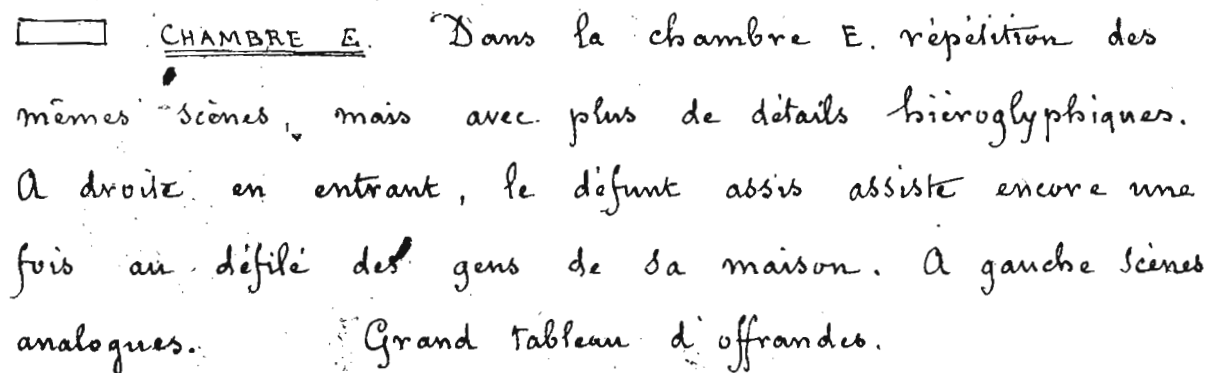 CHAMBRE E. Dans la chambre E. répétition des
mêmes scènes, mais avec plus de détails hiéroglyphiques.
A droite en entrant, le défunt assis assiste encore une
fois au défilé des gens de sa maison. A gauche scènes
analogues. Grand tableau d'offrandes.